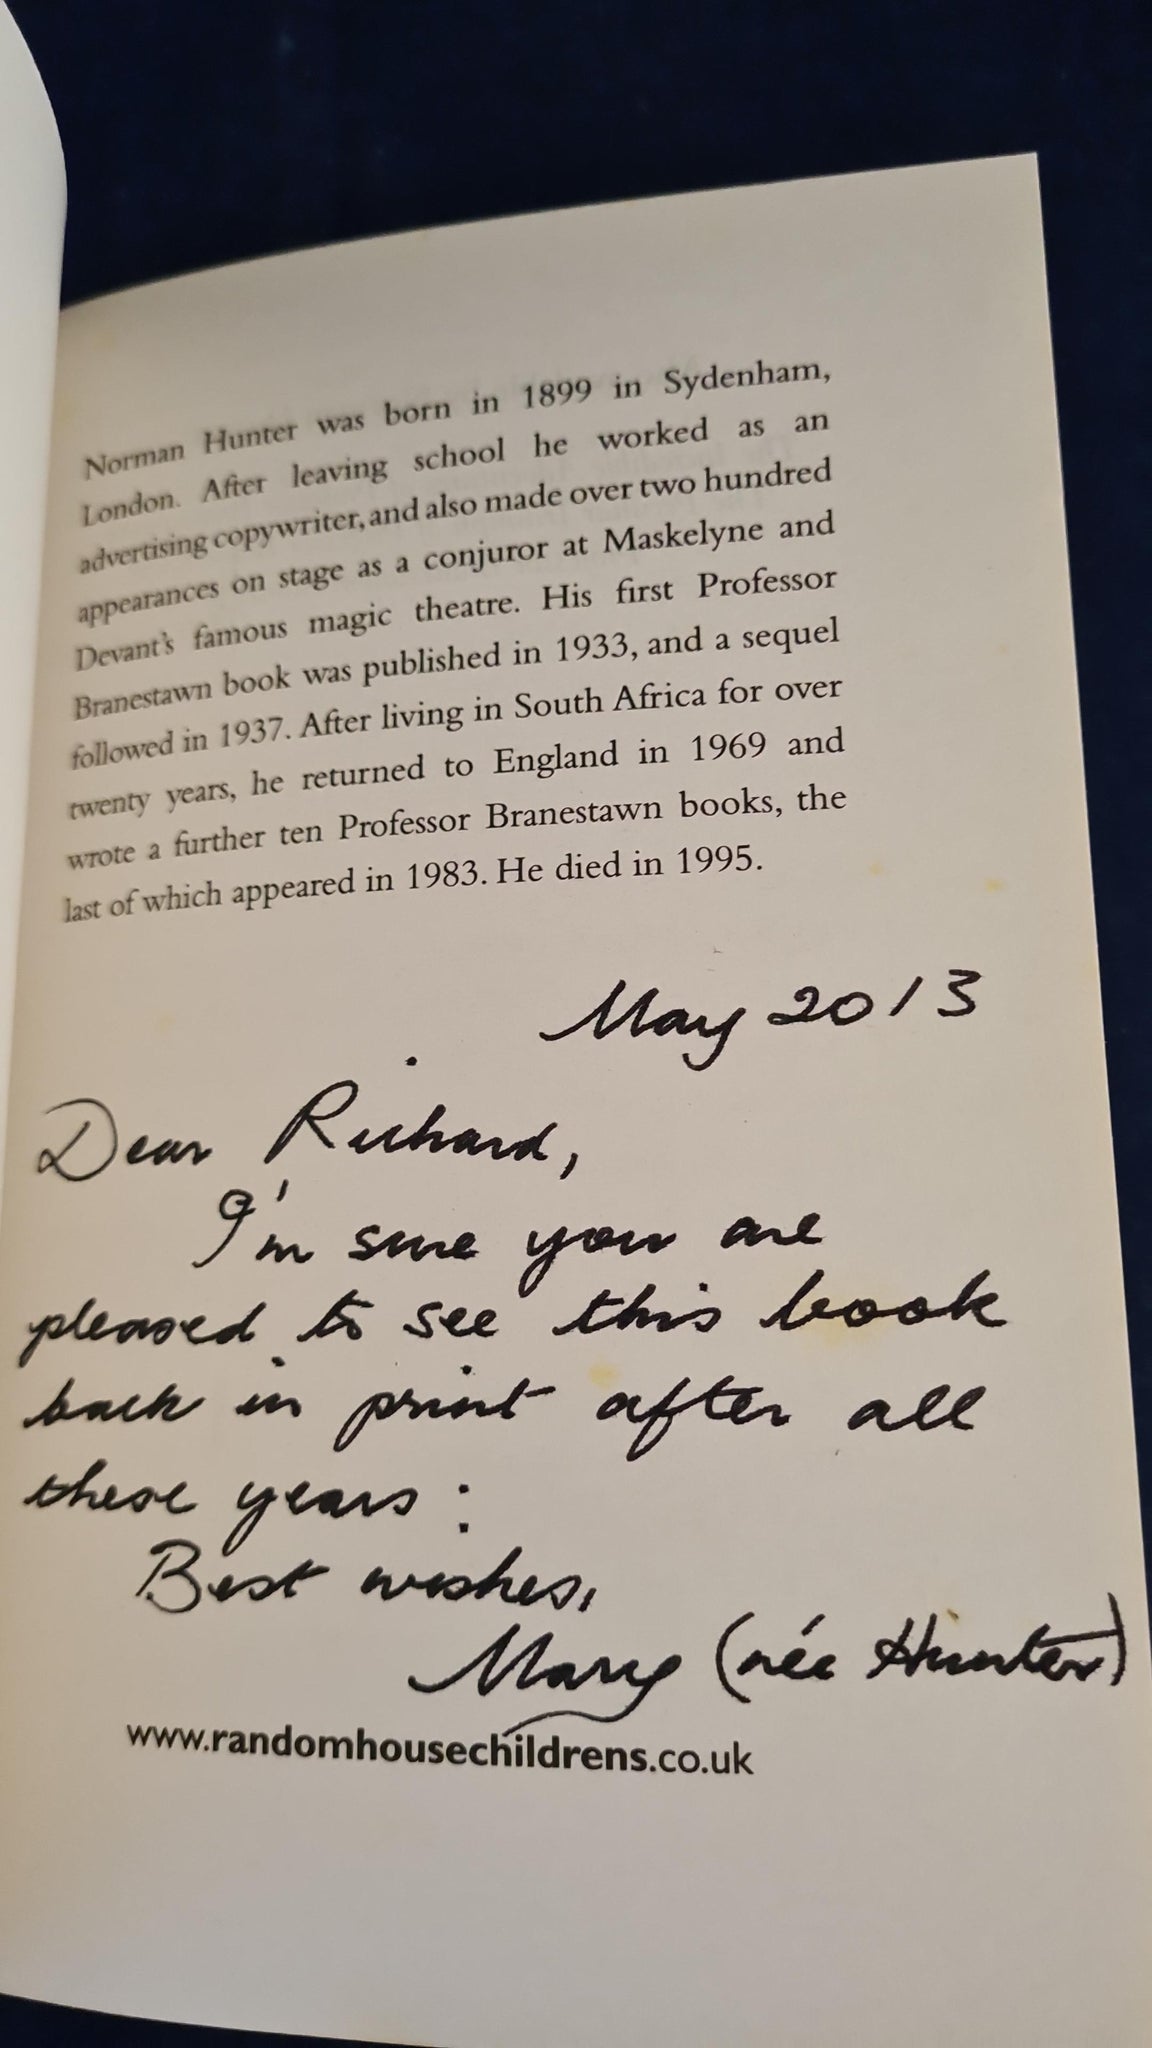 Norman Hunter was born in 1899 in Sydenham,
London. After leaving school he worked as an
advertising copywriter, and also made over two hundred
appearances on stage as a conjuror at Maskelyne and
Devant's famous magic theatre. His first Professor
Branestawn book was published in 1933, and a sequel
followed in 1937. After living in South Africa for over
twenty years, he returned to England in 1969 and
wrote a further ten Professor Branestawn books, the
last of which appeared in 1983. He died in 1995.
May 2013
Dear Richard,
I'm sure you are
pleased to see this book
back in print after all
these years:
Best wishes,
Mary (née Hunter)
www.randomhousechildrens.co.uk